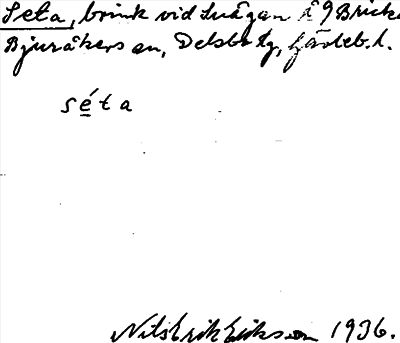 Seta, brink vid Svågan å 9 Bricka
Bjuråkers sn, Delsbo tg, Gävleb. l.
séta
Nils Erik Eriksson 1936.